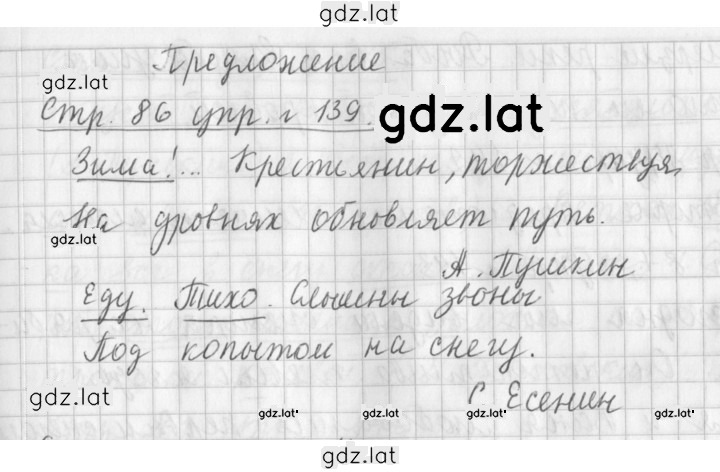 gdz.lat
Предложение
gdz.lat
Стр. 86 упр. № 139.
gdz.lat
Зима!... Крестьянин, торжествуя,
На дровнях обновляет путь.
gdz.lat
А. Пушкин
Еду. Тихо. Слышны звоны
Под копытом на снегу.
gdz.lat
С. Есенин
gdz.lat gdz.lat gdz.lat gdz.lat
gdz.lat